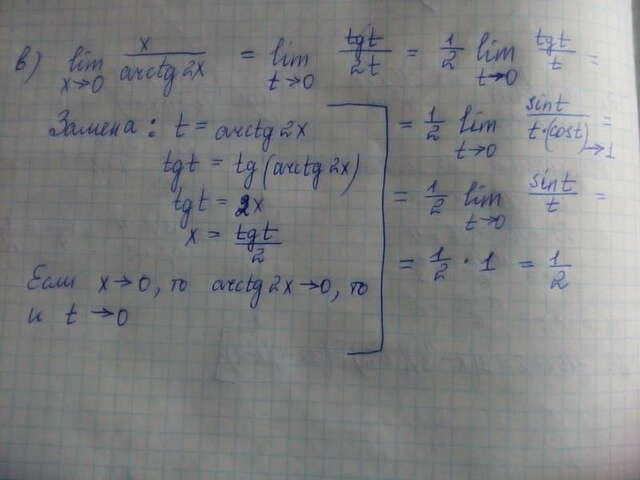 в) lim x→0 x/arctg 2x = lim t→0 tgt/2t = 1/2 lim t→0 tgt/t =
Замена: t = arctg 2x
tgt = tg(arctg 2x)
tgt = 2x
x = tgt/2
Если x→0, то arctg 2x→0, то
и t→0
= 1/2 lim t→0 sint/t·(cost)→1 =
= 1/2 lim t→0 sint/t =
= 1/2 · 1 = 1/2